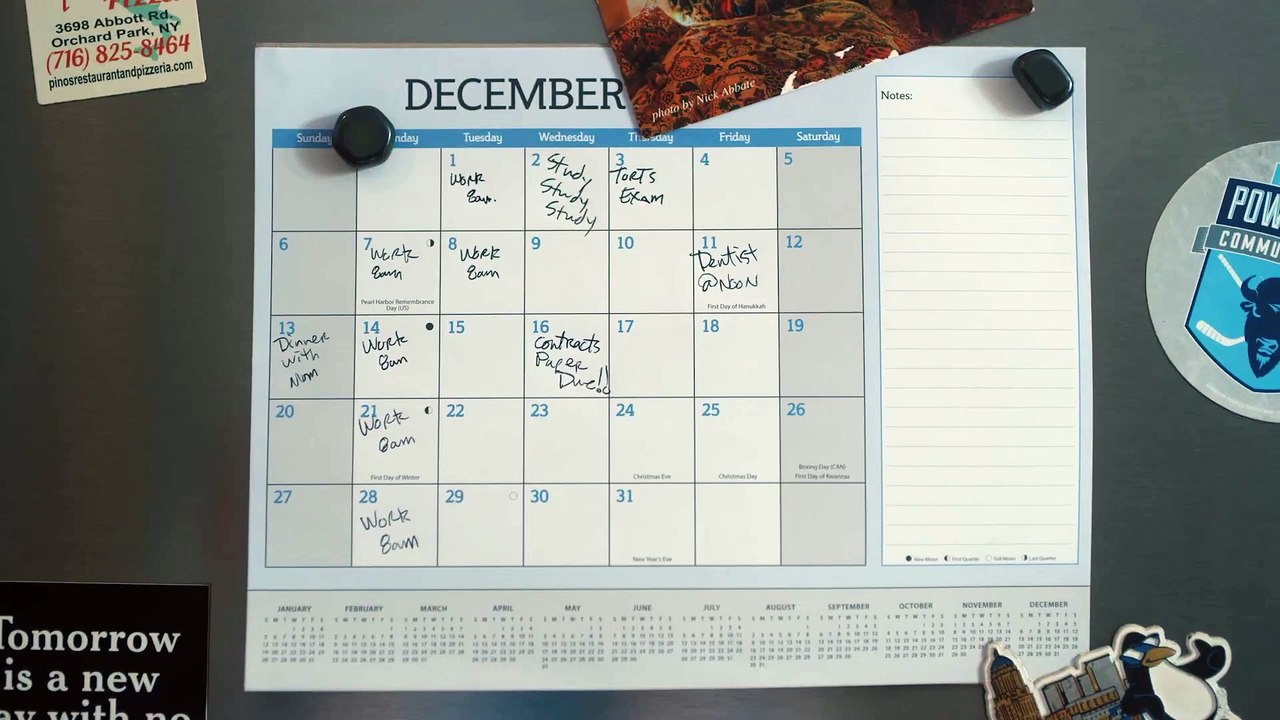 3698 Abbott Rd.
Orchard Park, NY
(716) 825-8464
pinosrestaurantandpizzeria.com
photo by Nick Abbate
DECEMBER
Notes:
Sunday
nday
Tuesday
Wednesday
Thursday
Friday
Saturday
1
Work
8am.
2 Study
Study
Study
3
TORTS
Exam
4
5
6
7
Work
8am
Pearl Harbor Remembrance
Day (US)
8
Work
8am
9
10
11
Dentist
@NOON
First Day of Hanukkah
12
13
Dinner
with
Mom
14
Work
8am
15
16
Contracts
Paper
Due!!
17
18
19
20
21
Work
8am
First Day of Winter
22
23
24
Christmas Eve
25
Christmas Day
26
Boxing Day (CAN)
First Day of Kwanzaa
27
28
Work
8am
29
30
31
New Year's Eve
New Moon
First Quarter
Full Moon
Last Quarter
JANUARY
FEBRUARY
MARCH
APRIL
MAY
JUNE
JULY
AUGUST
SEPTEMBER
OCTOBER
NOVEMBER
DECEMBER
POW
COMMU
Tomorrow
is a new
ay with no